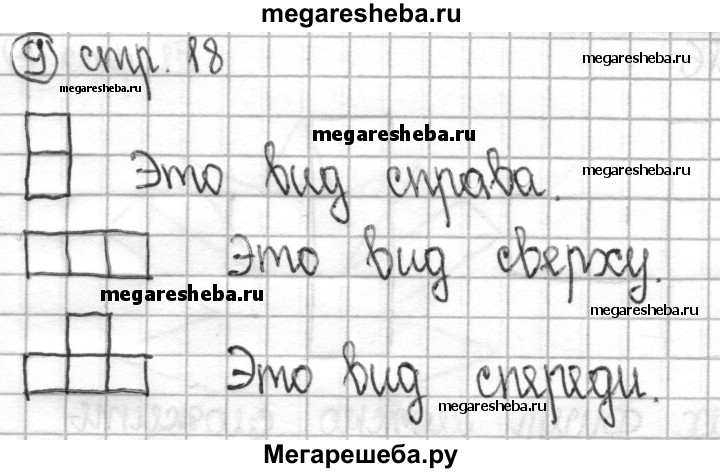 megaresheba.ru
9 стр. 18
megaresheba.ru
megaresheba.ru
megaresheba.ru
Это вид справа.
megaresheba.ru
Это вид сверху.
megaresheba.ru
megaresheba.ru
Это вид спереди.
megaresheba.ru
Мегарешеба.ру